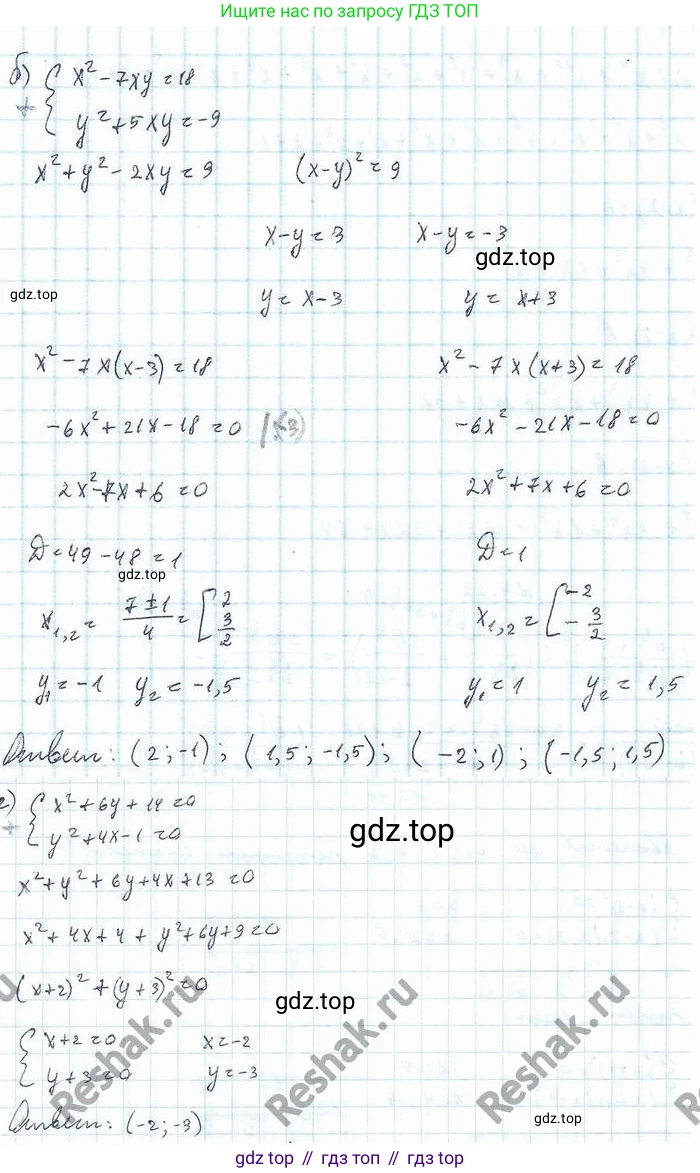 Ищите нас по запросу ГДЗ ТОП
б) { x² - 7xy = 18
+ { y² + 5xy = -9
x² + y² - 2xy = 9 (x-y)² = 9
x - y = 3 x - y = -3
gdz.top
gdz.top
y = x - 3 y = x + 3
x² - 7x(x-3) = 18 x² - 7x(x+3) = 18
-6x² + 21x - 18 = 0 |:(-3) -6x² - 21x - 18 = 0
2x² - 7x + 6 = 0 2x² + 7x + 6 = 0
D = 49 - 48 = 1 D = 1
gdz.top
x₁,₂ = (7 ± 1)/4 = [ 2 ; 3/2 x₁,₂ = [ -2 ; -3/2
y₁ = -1 y₂ = -1,5 y₁ = 1 y₂ = 1,5
Ответ: (2; -1); (1,5; -1,5); (-2; 1); (-1,5; 1,5)
г) { x² + 6y + 14 = 0
+ { y² + 4x - 1 = 0
gdz.top
x² + y² + 6y + 4x + 13 = 0
x² + 4x + 4 + y² + 6y + 9 = 0
(x+2)² + (y+3)² = 0
gdz.top
{ x + 2 = 0 x = -2
{ y + 3 = 0 y = -3
Reshak.ru
Reshak.ru
Reshak.ru
Ответ: (-2; -3)
gdz.top
gdz top // гдз топ // гдз.top